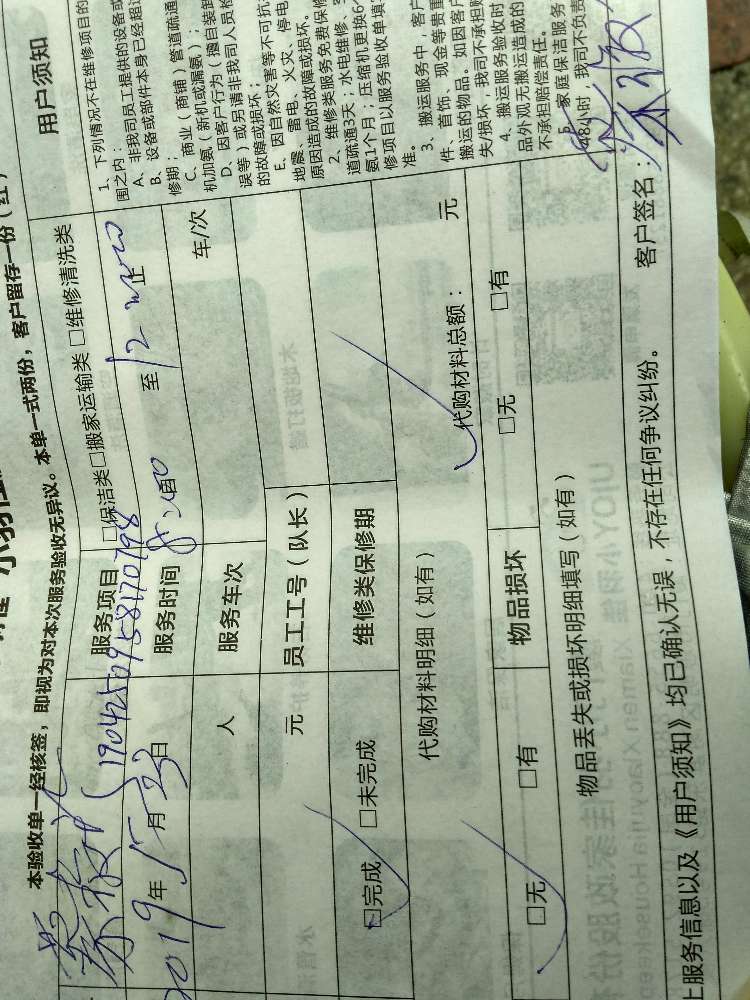 本验收单一经核签，即视为对本次服务验收无异议。本单一式两份，客户留存一份（红
服务项目 □保洁类□搬家运输类 □维修清洗类
19042509581170798
2019年5月23日 服务时间 8:00 至 12
人 服务车次 车/次
元 员工工号（队长）
□完成 □未完成 维修类保修期
代购材料明细（如有） 代购材料总额： 元
□无 □有 物品损坏 □无 □有
物品丢失或损坏明细填写（如有）
上服务信息以及《用户须知》均已确认无误，不存在任何争议纠纷。 客户签名：
用户须知
1、下列情况不在维修项目的
围之内：
A、非我司员工提供的设备或
B、设备或部件本身已经超过
修期；
C、商业（商铺）管道疏通
机加氨（新机或漏氨）；
D、因客户行为（擅自装卸
误等）或另请非我司人员检
的故障或损坏；
E、因自然灾害等不可抗
地震、雷电、火灾、停电
原因造成的故障或损坏。
2、维修类服务免费保修
道疏通3天；水电维修、
氨1个月；压缩机更换6个
修项目以服务验收单填
准。
3、搬运服务中，客户
件、首饰、现金等贵重
搬运的物品。如因客户
失损坏，我司不承担赔
4、搬运服务验收时
品外观无搬运造成的
不承担赔偿责任。
5、家庭保洁服务
48小时，我司不负责